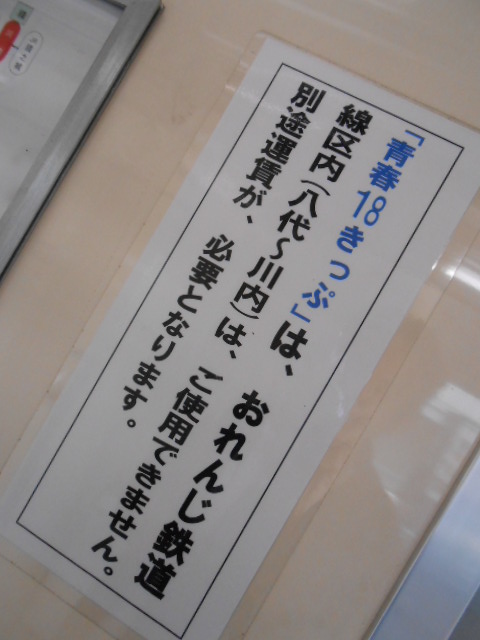 「青春18きっぷ」は、おれんじ鉄道
線区内(八代～川内)は、ご使用できません。
別途運賃が、必要となります。